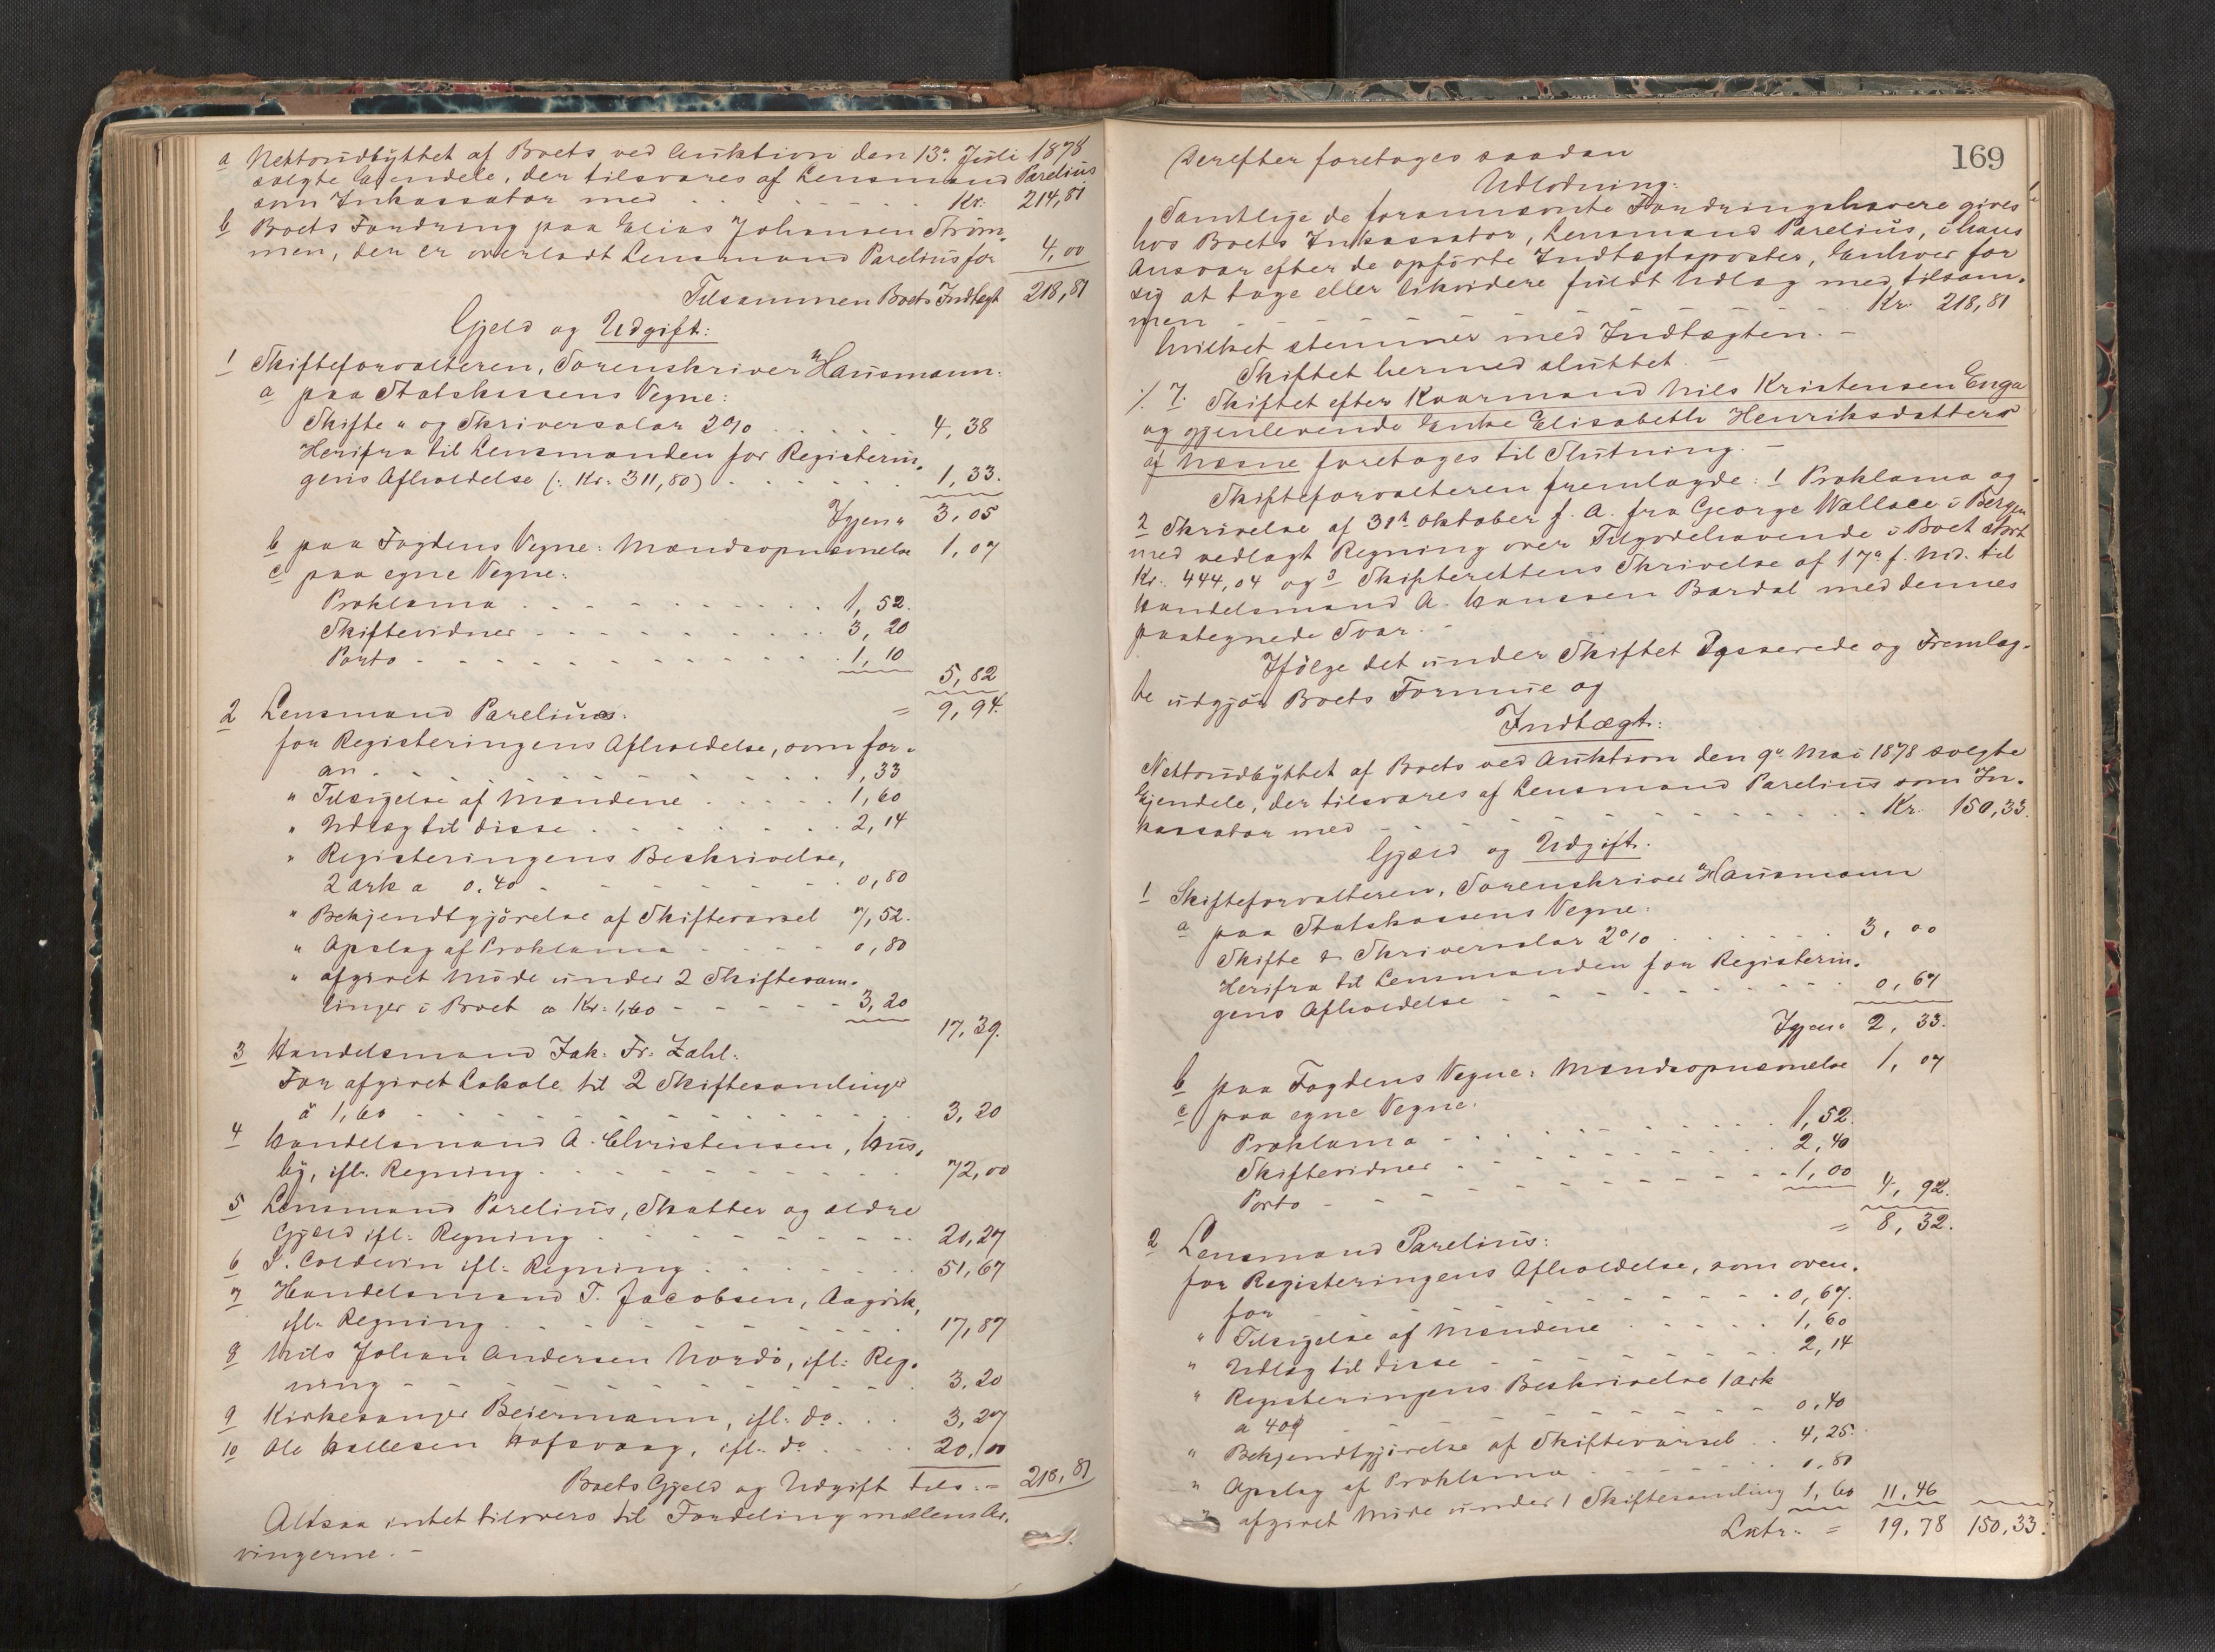 a Nettoudbyttet af Boets ved Auktion den 13de Juli 1878
solgte Eiendele, der tilsvares af Lensmand Parelius
som Inkassator med . . . . . . . Kr. 214,81
b Boets Fordring paa Elias Johansen Strøm-
men, der er overladt Lensmand Parelius for 4,00
Tilsammen Boets Indtægt 218,81
Gjeld og Udgift:
1 Skifteforvalteren, Sorenskriver Hausmann:
a paa Statskassens Vegne:
Skifte- og Skriversalær 2% . . . . . 4,38
Herifra til Lensmanden for Registerin-
gens Afholdelse (: Kr. 311,80) . . . . . 1,33.
Igjen 3,05
b paa Fogdens Vegne: Mændsopnævnelse 1,07
c paa egne Vegne:
Proklama . . . . . . . . 1,52.
Skiftevidner . . . . . . . . 3,20
Porto . . . . . . . . 1,10
5,82
2 Lensmand Parelius: = 9,94.
for Registeringens Afholdelse, som for-
an . . . . . . . . 1,33
" Tilsigelse af Mændene . . . . . 1,60
" Udlæg til disse . . . . . . . 2,14
" Registeringens Beskrivelse,
2 Ark a 0.40 . . . . . . . 0,80
" Bekjendtgjørelse af Skiftevarsel 7,52.
" Opslag af Proklama . . . . 0,80
" afgivet Møde under 2 Skiftesam-
linger i Boet a Kr. 1,60 . . . . . 3,20
17,39.
3 Handelsmand Jak. Fr. Zahl:
For afgivet Lokale til 2 Skiftesamlinger
à 1,60 . . . . . . . . 3,20
4 Handelsmand A. Christensen, Hus-
by, ifl. Regning . . . . . . . 72,00
5 Lensmand Parelius, Skatter og ældre
Gjæld ifl. Regning . . . . . . . 21,27
6 S. Coldevin ifl. Regning . . . . . . 51,67
7 Handelsmand T. Jacobsen, Aagvik,
ifl. Regning . . . . . . . . 17,87
8 Nils Johan Andersen Nordø, ifl. Reg-
ning . . . . . . . . 3.20
9 Kirkesanger Beiermann, ifl. do. . . 3,27
10 Ole Hallesen Hofsvaag, ifl. do . . . . 20,00
Boets Gjeld og Udgift tils. = 218,81
Altsaa intet tilovers til Fordeling mellem Ar-
vingerne. -
169
Derefter foretoges saadan
Udlodning:
Samtlige de forannævnte Fordringshavere gives
hos Boets Inkassator, Lensmand Parelius, i hans
Ansvar efter de opførte Indtægtsposter, Enhver for
sig at tage eller likvidere fuldt Udlæg med tilsam-
men . . . . . . . . Kr. 218,81
hvilket stemmer med Indtægten. -
Skiftet hermed sluttet. -
./. 7. Skiftet efter Kaarmand Nils Kristensen Enga
og gjenlevende Enke Elisabeth Henriksdatter
af Næsne foretages til Slutning. -
Skifteforvalteren fremlagde: 1 Proklama og
2 Skrivelse af 31te Oktober f. A. fra George Wallace i Bergen
med vedlagt Regning over Tilgodehavende i Boet stort
Kr. 444,04 og 3 Skifterettens Skrivelse af 17de f. Md. til
Handelsmand A. Hanssen Bardal med dennes
paategnede Svar. -
Ifølge det under Skiftet Passerede og Fremlag-
te udgjør Boets Formue og
Indtægt:
Nettoudbyttet af Boets ved Auktion den 9de Mai 1878 solgte
Ejendele, der tilsvares af Lensmand Parelius som In-
kassator med . . . . . . . . Kr. 150,33.
Gjæld og Udgift.
1 Skifteforvalteren, Sorenskriver Hausmann
a paa Statskassens Vegne:
Skifte & Skriversalær 2% . . . . . 3,00
Herifra til Lensmanden for Registerin-
gens Afholdelse . . . . . . . . 0,67
Igjen 2,33.
b paa Fogdens Vegne: Mændsopnævnelse 1,07
c paa egne Vegne:
Proklama . . . . . . . . 1,52.
Skiftevidner . . . . . . . . 2,40
Porto . . . . . . . . 1,00
4,92.
= 8,32.
2 Lensmand Parelius:
for Registeringens Afholdelse, som oven-
for . . . . . . . . 0,67.
" Tilsigelse af Mændene . . . . . 1,60
" Udlæg til disse . . . . . . . 2,14
" Registeringens Beskrivelse 1 Ark
a 40 . . . . . . . 0,40
" Bekjendtgjørelse af Skiftevarsel . . 4,25.
" Opslag af Proklama . . . . . 0.80
" afgivet Møde under 1 Skiftesamling 1,60 11,46
Latr. = 19,78 150,33.